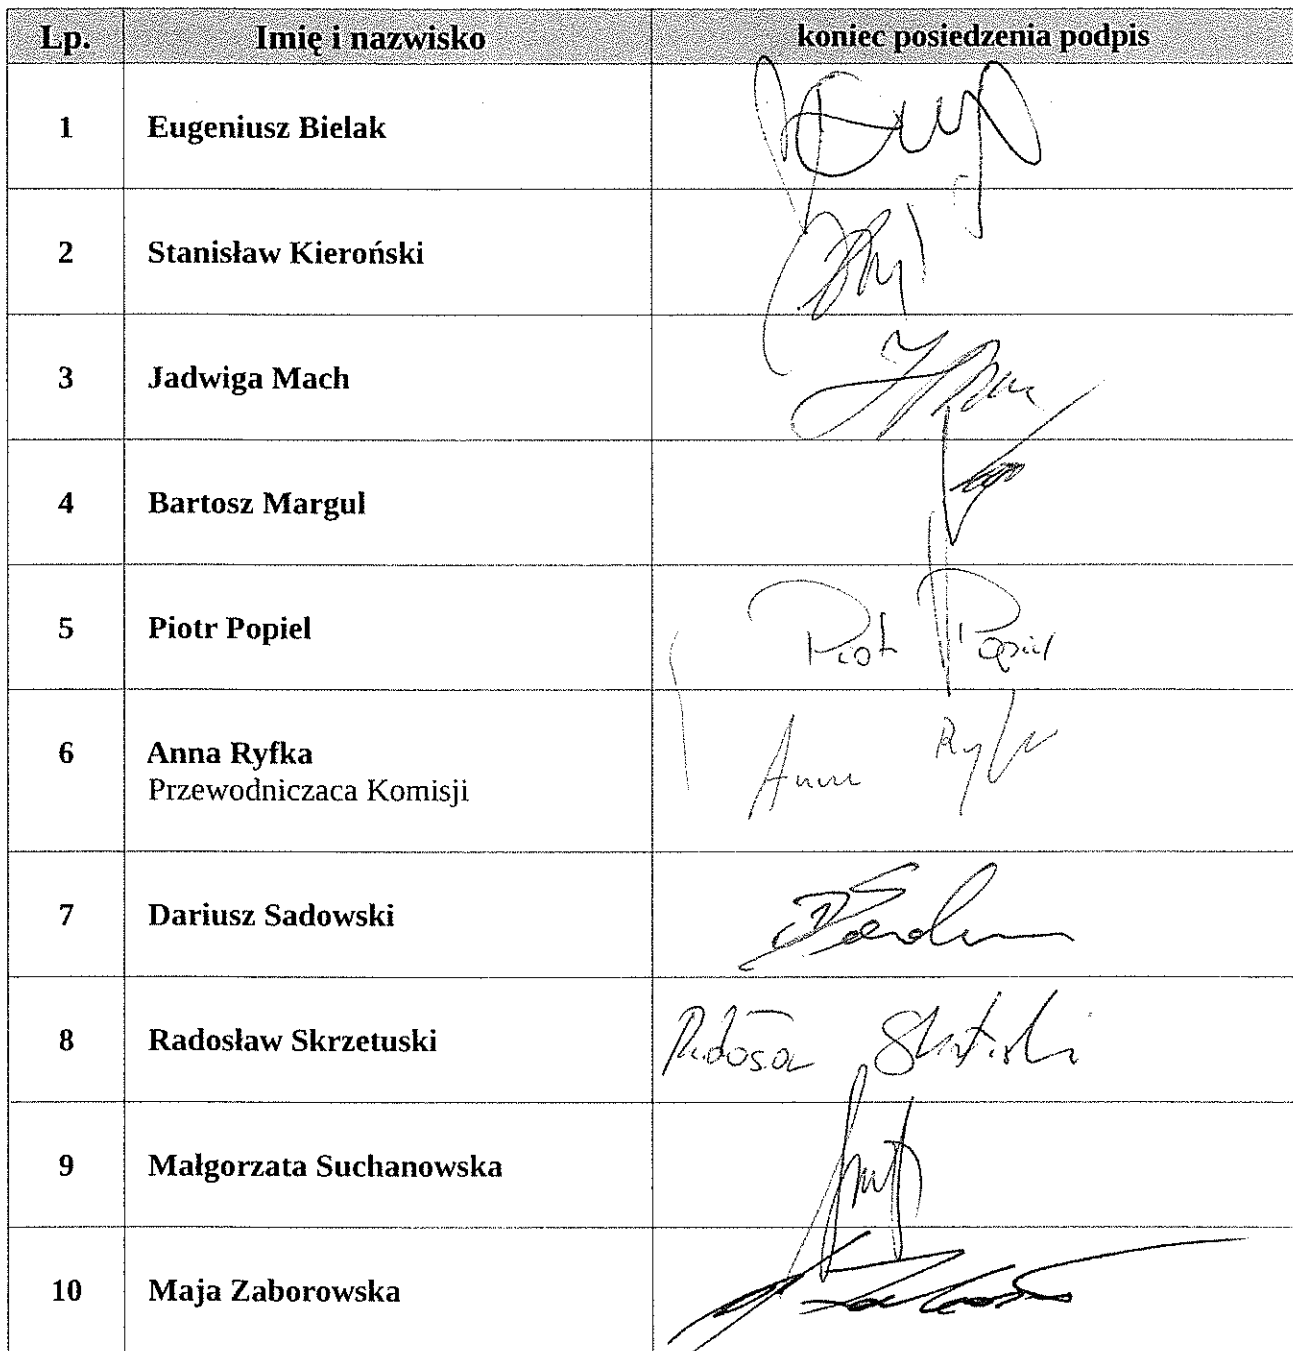 Lp. Imię i nazwisko koniec posiedzenia podpis
1 Eugeniusz Bielak
2 Stanisław Kieroński
3 Jadwiga Mach
4 Bartosz Margul
5 Piotr Popiel Piotr Popiel
6 Anna Ryfka Anna
Przewodniczaca Komisji
7 Dariusz Sadowski
8 Radosław Skrzetuski
9 Małgorzata Suchanowska
10 Maja Zaborowska